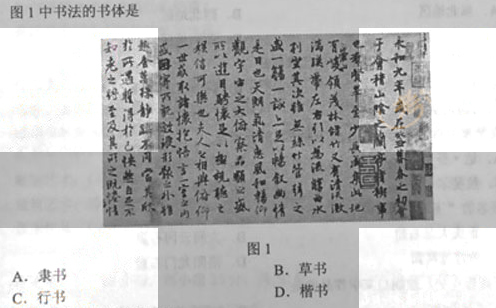 图1中书法的书体是
永和九年歲在癸丑暮春之初會
于會稽山陰之蘭亭脩稧事
也群賢畢至少長咸集此地
有崇山峻領茂林脩竹又有清流激
湍暎帶左右引以為流觴曲水
列坐其次雖無絲竹管弦之
盛一觴一詠亦足以暢敘幽情
是日也天朗氣清惠風和暢仰
觀宇宙之大俯察品類之盛
所以遊目騁懷足以極視聽之
娛信可樂也夫人之相與俯仰
一世或取諸懷抱悟言一室之內
或因寄所託放浪形骸之外雖
趣舍萬殊靜躁不同當其欣
於所遇蹔得於己怏然自足不
知老之將至及其所之既惓情
图1
A. 隶书
B. 草书
C. 行书
D. 楷书